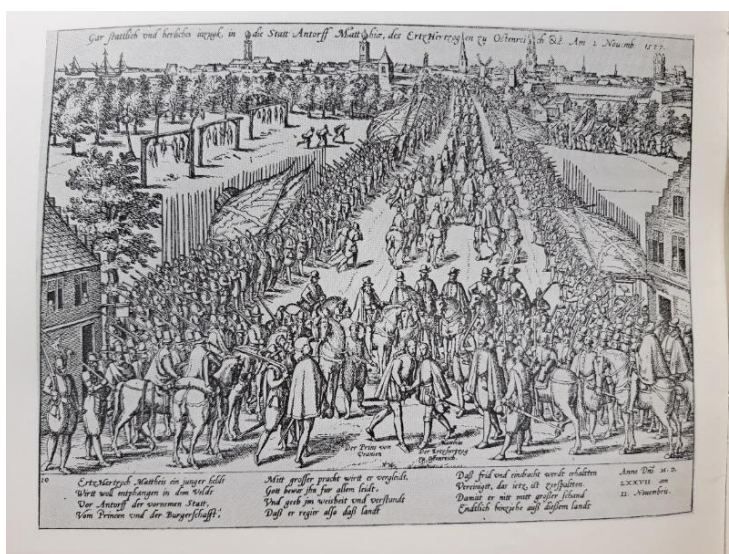 Gar stattlich vnd herlicher inzugk, in die Statt Antorff Matthiæ, des Ertz Hertzogen zu Ostenreich &c Am 2 Nouemb 1577.
Der Prins von
Vranien
Matthias
Der Ertzhertzog
10
Ertz Hertzoch Mattheis ein junger heldt
Wirtt woll entphangen in dem Velde
Vor Antorff der vornemen Statt,
Vom Princen vnd der Burgerschafft.
Mitt grosser pracht wirtt er vergleidt.
Gott bewar ihn fur allem leidt.
Vnd geeb im weisheit vnd verstandt
Daß er regier also daß landt
Daß frid vnd eindracht werde erhalten
Vereinigtt, das ietz ist zerspalten
Damitt er nitt mitt grosser schand
Endtlich hinziehe auß dißem landt
Anno Dnj M. D.
LXXVII am
Nouembri.